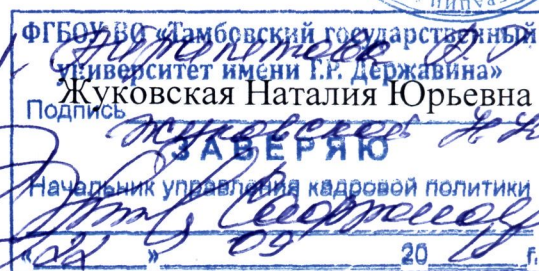 ФГБОУ ВО «Тамбовский государственный
университет имени Г.Р. Державина»
Жуковская Наталия Юрьевна
Подпись Жуковской Н.Ю.
ЗАВЕРЯЮ
Начальник управления кадровой политики
«22» 09 20 г.